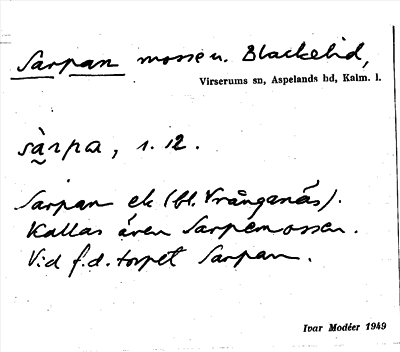 Sarpan mosse u. Blackelid,
Virserums sn, Aspelands hd, Kalm. l.
sàrpa, s. 12.
Sarpan ek (bl. Vrånganäs).
Kallas även Sarpemossen.
Vid f.d. torpet Sarpan.
Ivar Modéer 1949